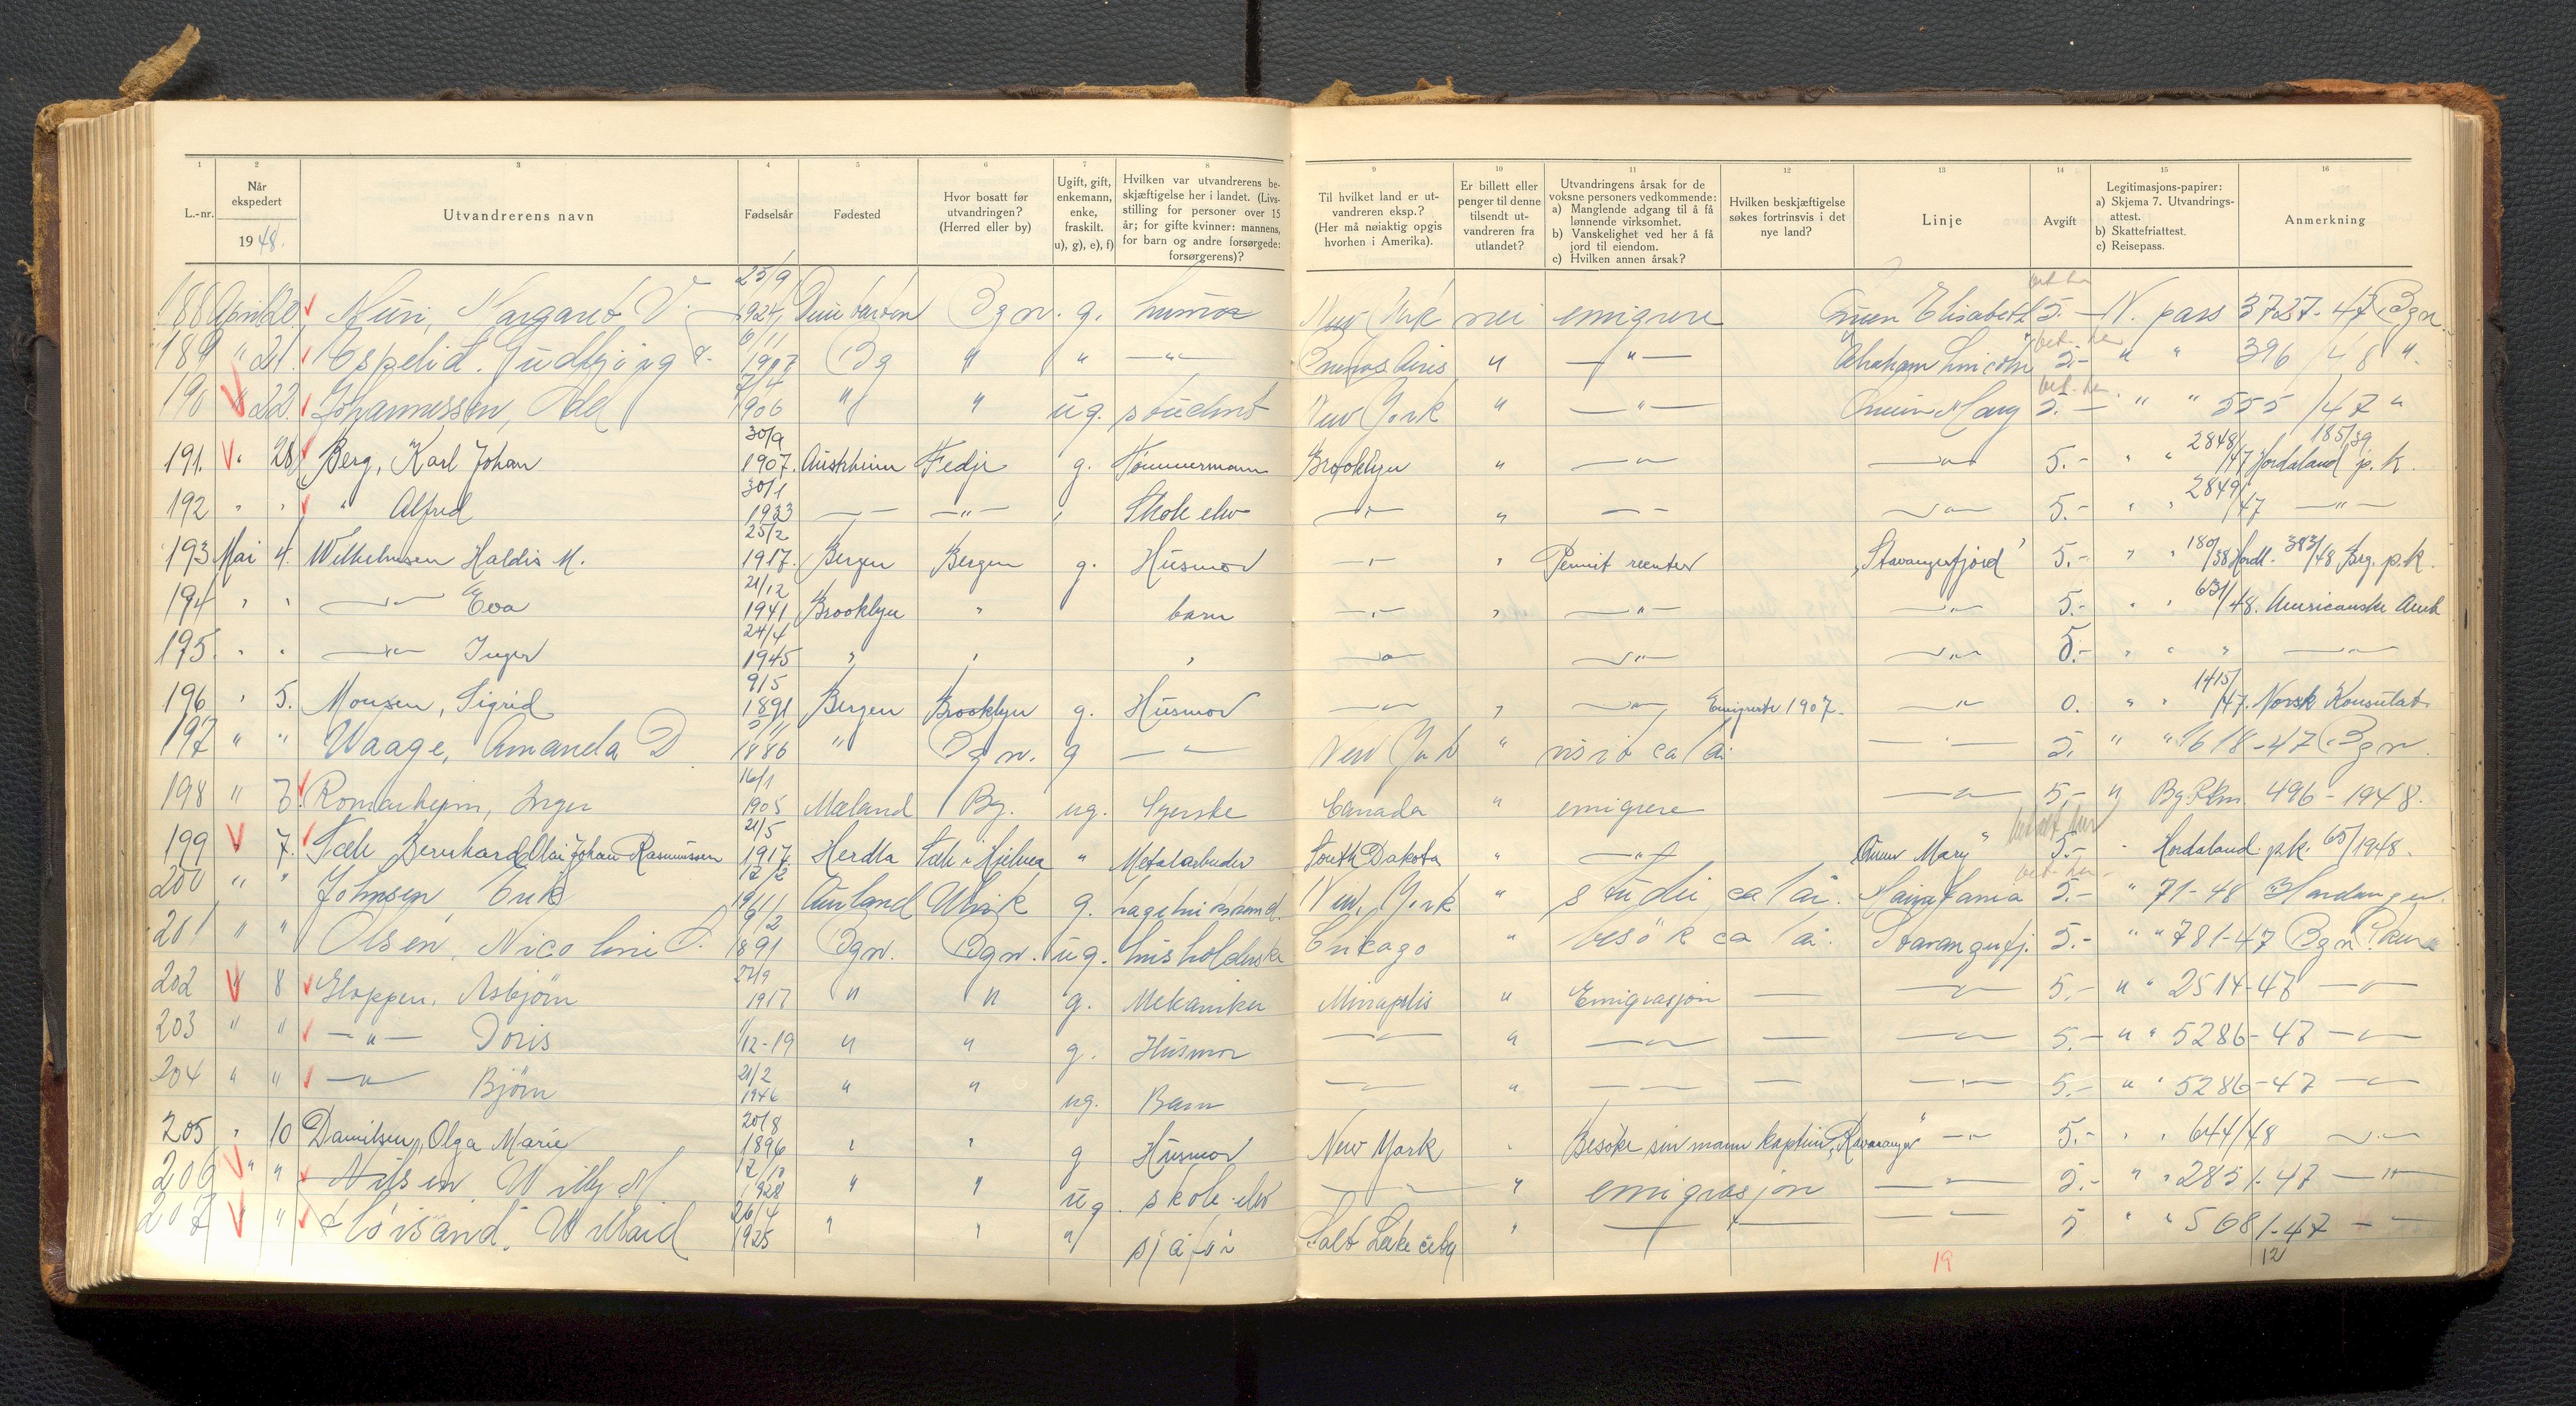 1 2 3 4 5 6 7 8 9 10 11 12 13 14 15 16
L.-nr.
Når ekspedert
1948.
Utvandrerens navn
Fødselsår
Fødested
Hvor bosatt før utvandringen? (Herred eller by)
Ugift, gift, enkemann, enke, fraskilt. u), g), e), f)
Hvilken var utvandrerens beskjæftigelse her i landet. (Livsstilling for personer over 15 år; for gifte kvinner: mannens, for barn og andre forsørgede: forsørgerens)?
Til hvilket land er utvandreren eksp.? (Her må nøiaktig opgis hvorhen i Amerika).
Er billett eller penger til denne tilsendt utvandreren fra utlandet?
Utvandringens årsak for de voksne personers vedkommende: a) Manglende adgang til å få lønnende virksomhet. b) Vanskelighet ved her å få jord til eiendom. c) Hvilken annen årsak?
Hvilken beskjæftigelse søkes fortrinsvis i det nye land?
Linje
Avgift
Legitimasjons-papirer: a) Skjema 7. Utvandringsattest. b) Skattefriattest. c) Reisepass.
Anmerkning
188 April 20. Margaret V. 25/9 1924 Bgn. g. husmor New York nei emigrere Queen Elisabeth 5.- N. pass 3737-47 Bgn.
189 " 21. Espelid, Gudbjørg 6/11 1907 Bg " " -"- Buenos Aires " -"- Abraham Lincoln 5.- " " 396/48 "
190 " 22. Johannessen, Odd 7/4 1906 " " ug. student New York " -"- Queen Mary 5.- " " 555/47 "
191. " 28 Berg, Karl Johan 30/9 1907. Austrheim Fedje g. Tømmermann Brooklyn " -"- -"- 5.- " " 2848/47 185/39 Hordaland p.k.
192 " " " Alfred 30/1 1933 -"- -"- Skole elev -"- " -"- -"- 5.- " " 2849/47 -"-
193 Mai 4. Wilhelmsen Haldis M. 25/2 1917. Bergen Bergen g. Husmor -"- " Permit reenter "Stavangerfjord" 5.- " " 180/38 Hordl. 383/48 Brg. p.k.
194 " " -"- Eva 21/12 1941 Brooklyn " barn -"- " -"- -"- 5.- " " 631/48. Amerikanske Amb
195. " " -"- Inger 24/4 1945 " " " -"- -"- -"- 5.- " " " -"-
196 " 5. Monsen, Sigrid 9/5 1891 Bergen Brooklyn g. Husmor -"- " -"- Emigrerte 1907. -"- 0. " " 1415/47. Norsk Konsulat
197 " " Waage, Amanda D 1886 " Bgn. g -"- New York " visit ca 1 år -"- 5. " " 1618-47 Bgn.
198 " 7. Romarheim, Inger 16/1 1905 Mæland Bg. ug. Syerske Canada " emigrere -"- 5.- " Bg. Pkm. 496-1948.
199 7. Sæle Bernhard Olai Johan Rasmussen 21/5 1917. Herdla Sæle i Hjelmea " Metalarbeider South Dakota " -"- Queen Mary" 5.- " Hordaland p.k. 65/1948.
200 " " Johnsen, Erik 19/11 Aurland Ulvik g. New York " studie ca 1 år. 5.- " 71-48 Hardanger.
201 " " Olsen, Nicoline 9/2 1891 Bgn. Bgn. ug. husholderske Chicago " besøk ca 1 år. Stavangerfj. 5.- " " 781-47 Bgn.
202 " 8 Gloppen, Asbjørn 27/9 1917 " " g. Mekaniker Minnapolis " Emigrasjon - -"- 5.- " " 2514-47 -"-
203 " " -"- Doris 1/12-19 " " g. Husmor -"- " -"- - -"- 5.- " " 5286-47 -"-
204 " " -"- Bjørn 21/2 1946 " " ug. Barn -"- " -"- - -"- 5.- " " 5286-47 -"-
205 " 10 Danielsen, Olga Marie 20/8 1896 " " g Husmor New York " Besøke sin mann kaptein -"- 5.- " " 644/48 -"-
206 " " Nilsen, Willy M. 12/10 1928 " " ug. skole elev -"- " emigrasjon -"- 5.- " " 2851-47 -"-
207 " " Høisand, 26/4 1925 " " " sjåfør Salt Lake city " -"- -"- 5 " " 5681-47 -"-
19
12